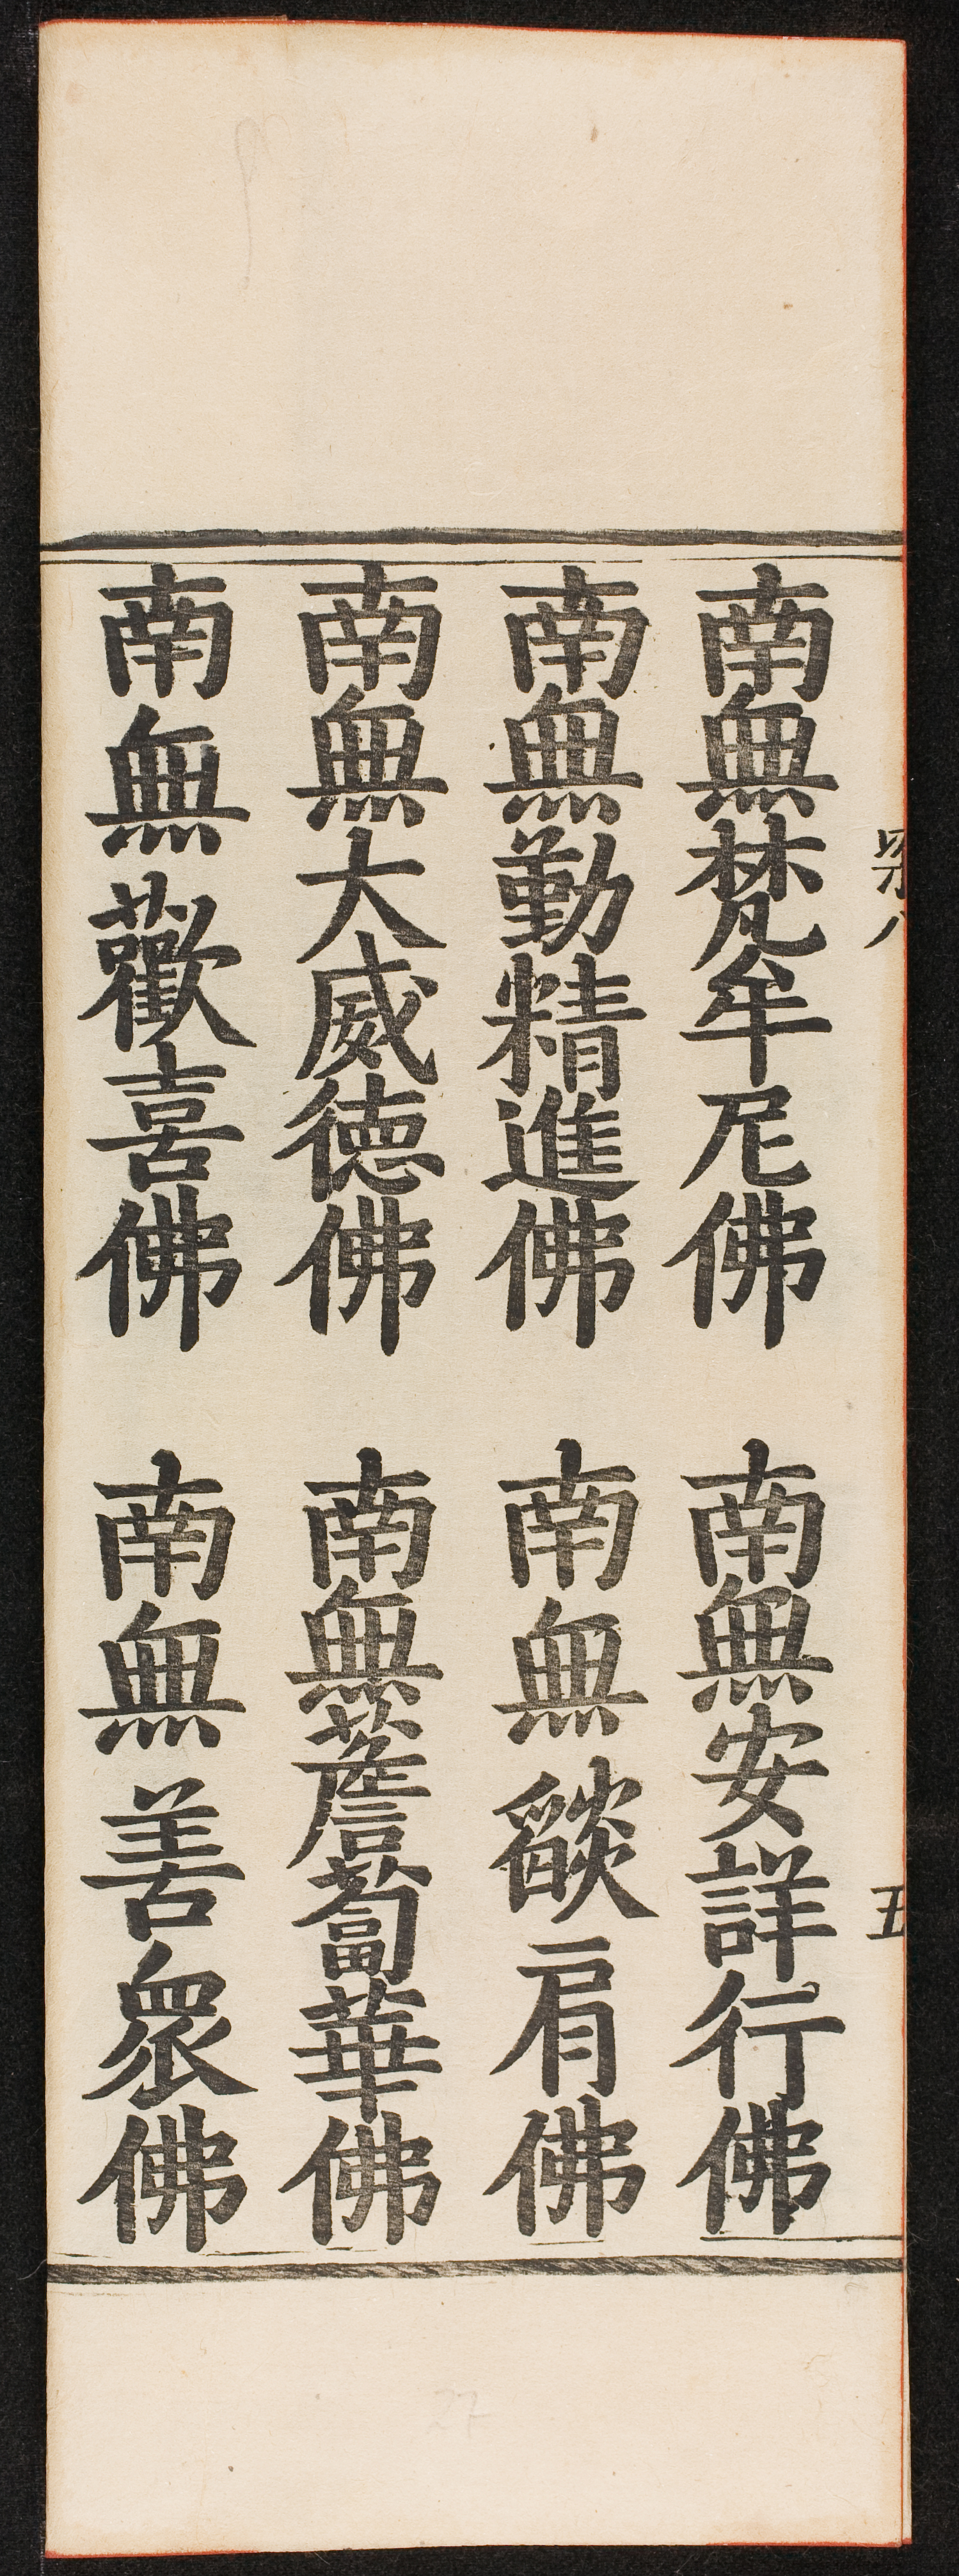 南無梵牟尼佛　南無安詳行佛
南無勤精進佛　南無燄肩佛
南無大威德佛　南無薝蔔華佛
南無歡喜佛　南無善眾佛
五
27